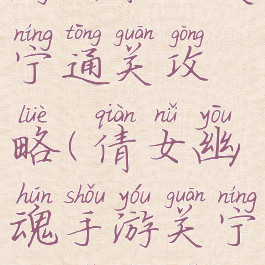 níng tōng guān gōng
宁通关攻
lüè qiàn nǚ yōu
略(倩女幽
hún shǒu yóu guān níng
魂手游关宁